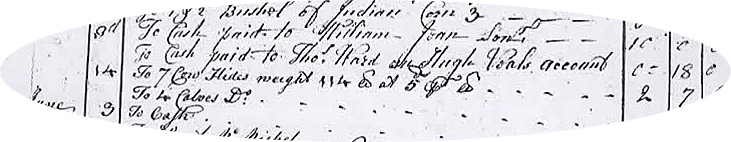 2 Bushel of Indian Corn 3
To Cash paid to William Jean Sonr 10 0
To Cash paid to Thos. Ward on Hugh Veals account 0= 18 0
14 To 7 Cow Hides weight 114 lb at 5d pr lb 2 7
To 4 Calves Do.
June 3 To Cash